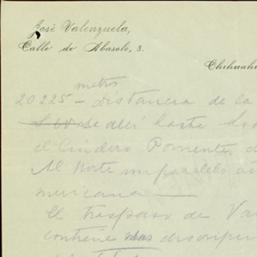 José Valenzuela,
Calle de Abasolo, 3.
Chihuahu
metros
20.225 - distancia de la
se alli hasta
el lindero Poniente, d
Al Norte un paralelo a
mericana
El traspaso de Va
contiene mas